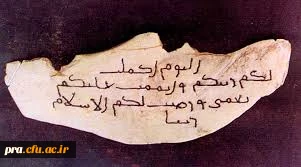 اليوم اكملت
لكم دينكم و اتممت عليكم
نعمتى و رضيت لكم الاسلام
دينا
pra.cfu.ac.ir